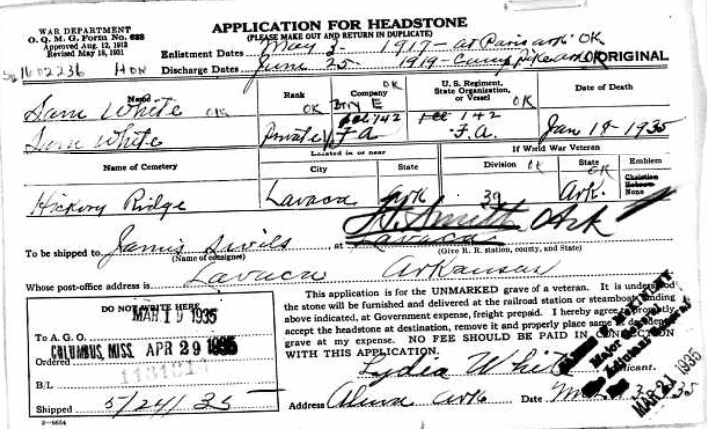 WAR DEPARTMENT
O. Q. M. G. Form No. 623
Approved Aug. 12, 1913
Revised May 18, 1931
APPLICATION FOR HEADSTONE
(PLEASE MAKE OUT AND RETURN IN DUPLICATE)
Enlistment Dates May 3 1917 - at Paris ark OK
1602236 HON Discharge Dates June 25 1919 - Camp Pike ark OK ORIGINAL
Name Rank Company OK U. S. Regiment, State Organization, or Vessel OK Date of Death
Sam White OK OK Btry E 142
Sam White Private F A 142 F.A. Jan 18 - 1935
Name of Cemetery Located in or near City State If World War Veteran Division OK State OK Emblem
Christian
Hebrew
None
Hickory Ridge Lavaca Ark 39 Ark.
To be shipped to James Sivils at Ft. Smith Ark
Lavaca
(Name of consignee) (Give R. R. station, county, and State)
Whose post-office address is Lavaca Arkansas
DO NOT WRITE HERE
MAR 19 1935
To A. G. O.
COLUMBUS, MISS. APR 29 1935
Ordered
B/L
Shipped 5/24/35
3-8654
This application is for the UNMARKED grave of a veteran. It is understood
the stone will be furnished and delivered at the railroad station or steamboat landing
above indicated, at Government expense, freight prepaid. I hereby agree to promptly
accept the headstone at destination, remove it and properly place same at decedent's
grave at my expense. NO FEE SHOULD BE PAID IN CONNECTION
WITH THIS APPLICATION.
Lydia White Applicant.
Address Alma Ark Date 35
MAR 21 1935